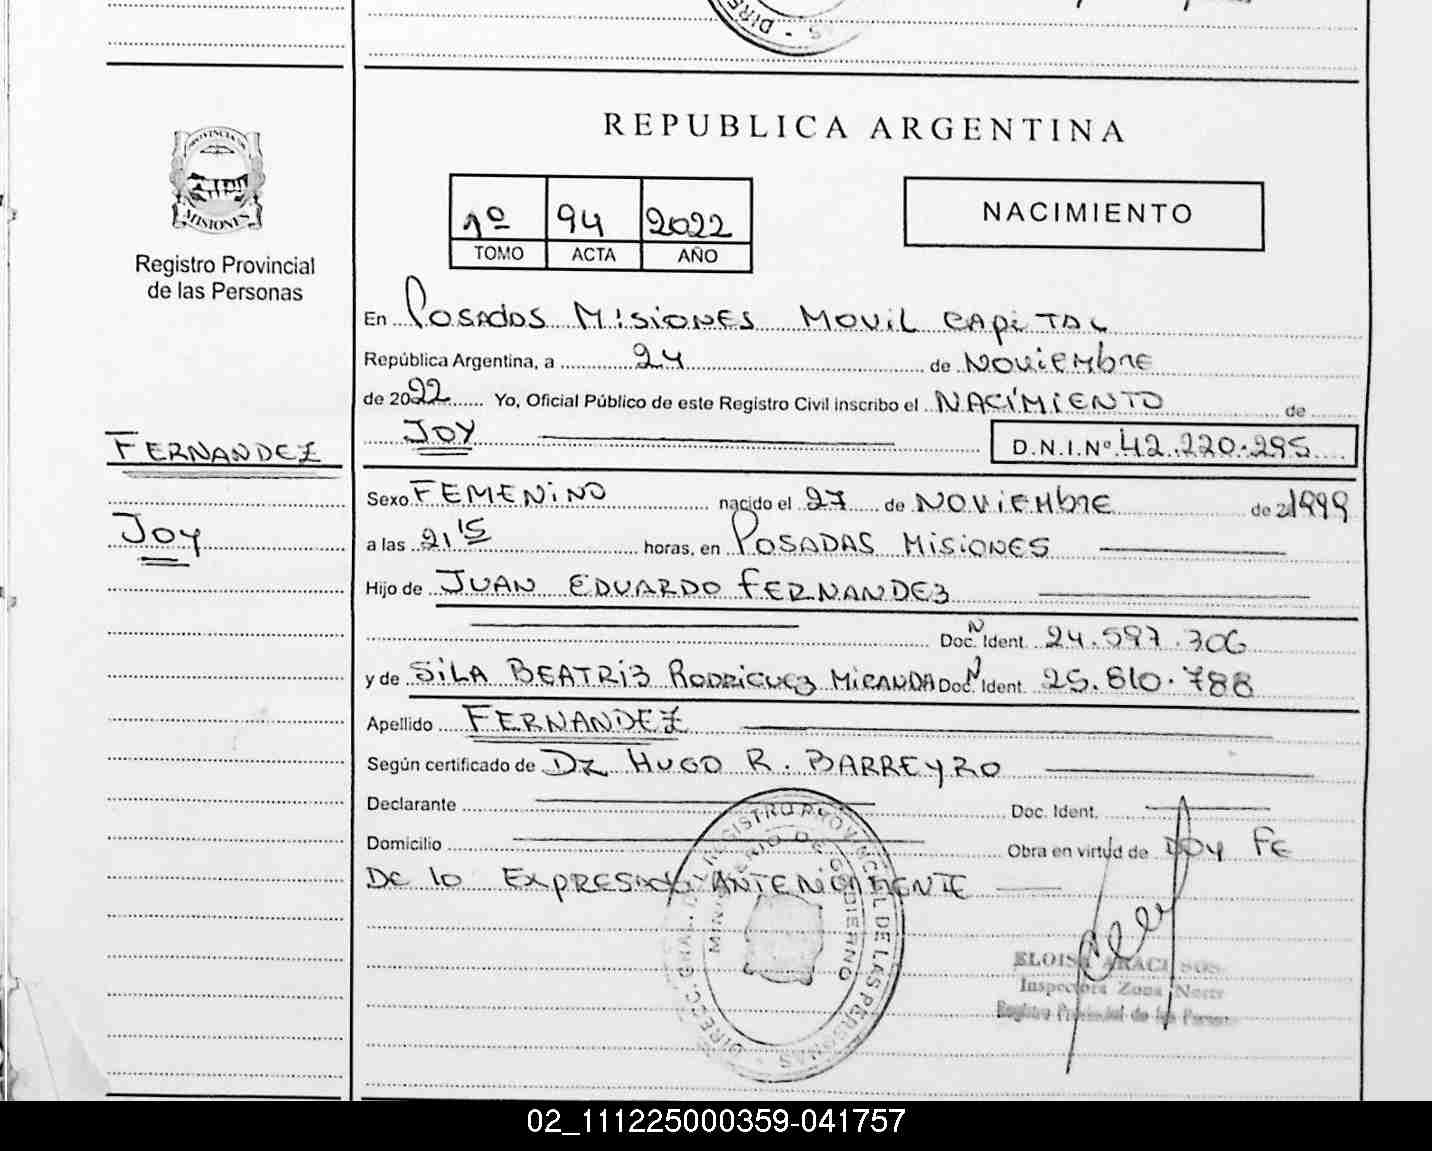 DIRE
AS -
REPUBLICA ARGENTINA
PROVINCIA DE
MISIONES
Registro Provincial
de las Personas
1º 94 2022
TOMO ACTA AÑO
NACIMIENTO
En Posadas Misiones Movil Capital
República Argentina, a 24 de Noviembre
de 2022 Yo, Oficial Público de este Registro Civil inscribo el NACIMIENTO de
JOY D.N.I.Nº 42.220.295
FERNANDEZ
JOY
Sexo FEMENINO nacido el 27 de NOVIEMBRE de 2 1999
a las 21 15 horas, en POSADAS MISIONES
Hijo de JUAN EDUARDO FERNANDEZ
Doc. N Ident. 24.597.306
y de SILA BEATRIZ RODRIGUEZ MIRANDA Doc. N Ident. 25.810.788
Apellido FERNANDEZ
Según certificado de Dr HUGO R. BARREYRO
Declarante Doc. Ident.
Domicilio Obra en virtud de DOY FE
DE lo EXPRESADO ANTERIORMENTE
DIRECC. GRAL. DE REGISTRO PROVINCIAL DE LAS PERSONAS -
MINISTERIO DE GOBIERNO
ELOISA ARACI SOS
Inspectora Zona Norte
Registro Provincial de las Personas
02_111225000359-041757